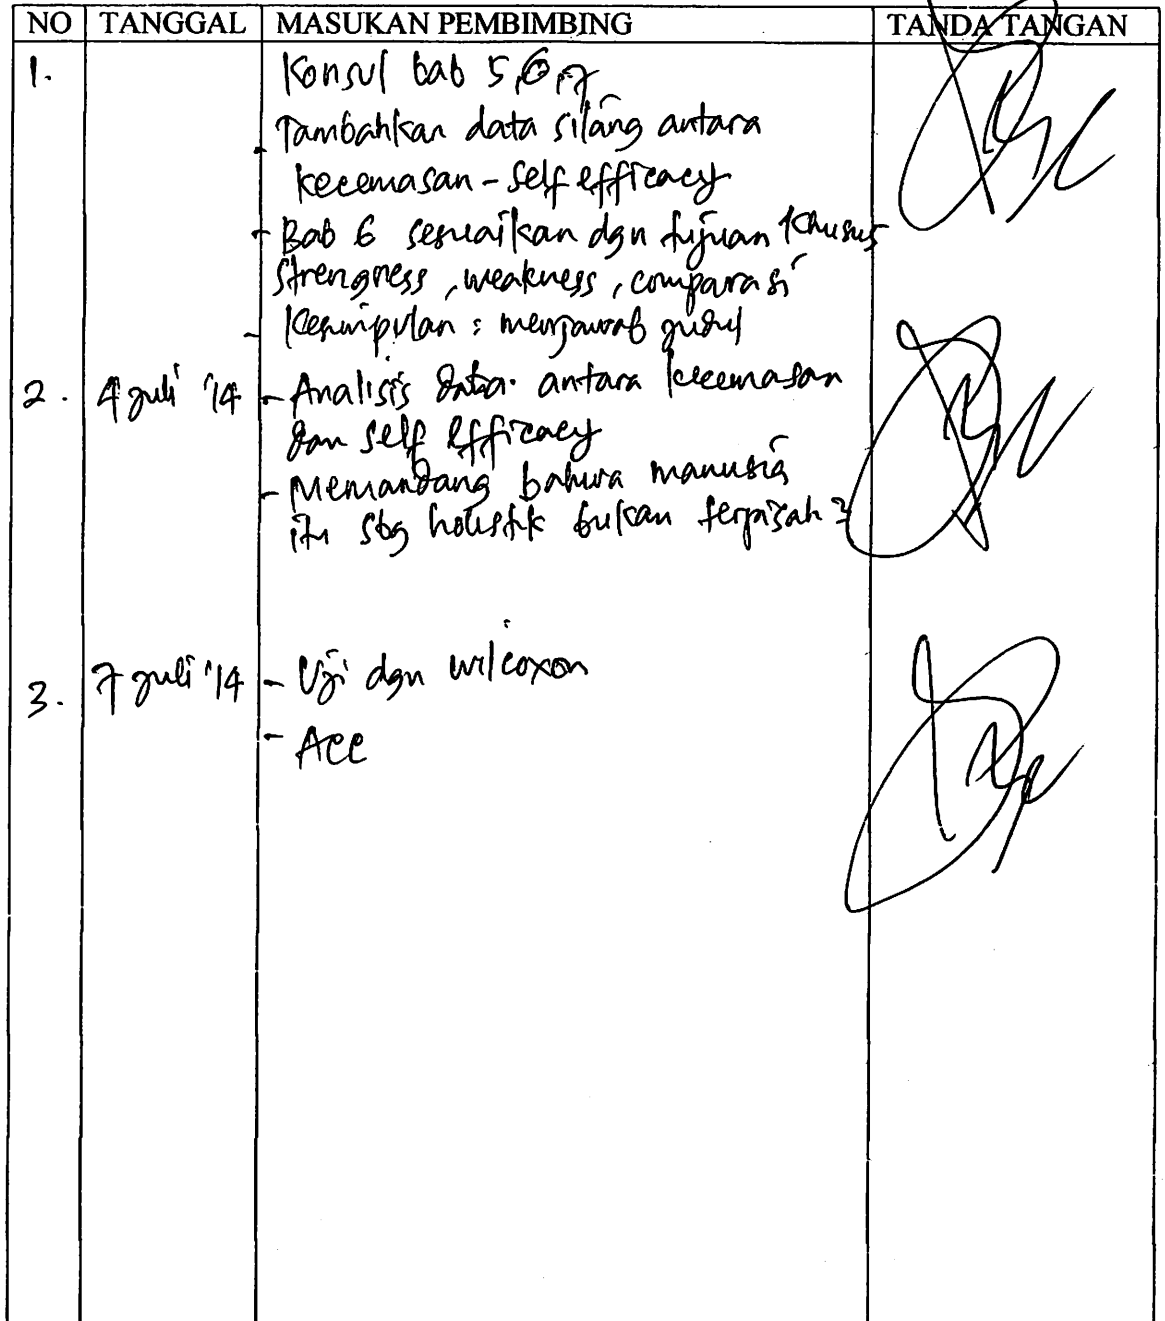 NO TANGGAL MASUKAN PEMBIMBING TANDA TANGAN
1. Konsul bab 5,6,7
- Tambahkan data silang antara
kecemasan - self efficacy
- Bab 6 sesuaikan dgn tujuan khusus
strengness, weakness, comparasi
- Kesimpulan : menjawab judul
2. 4 juli '14 - Analisis data antara kecemasan
dan self efficacy
- Memandang bahwa manusia
itu sbg holistik bukan terpisah2
3. 7 juli '14 - Uji dgn wilcoxon
- Acc